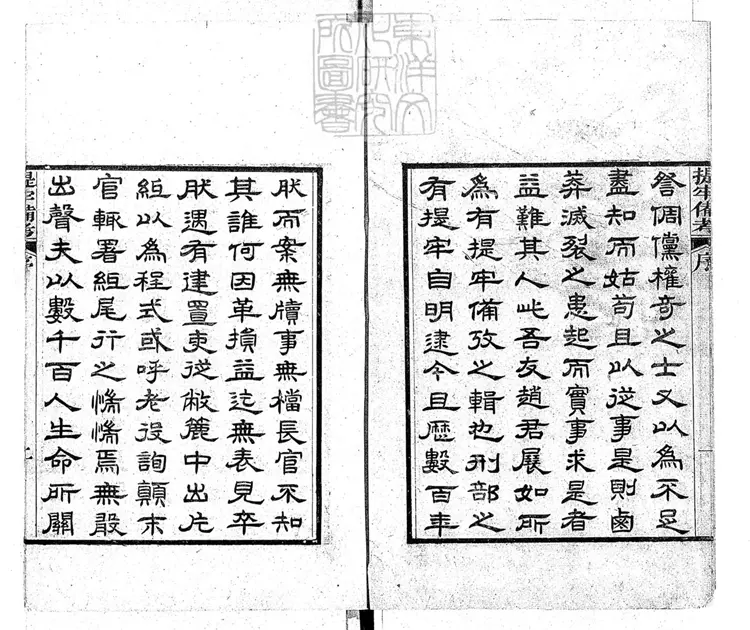 東洋文
化研究
所圖書
提牢備考 序 一
倜儻權奇之士又以為不足
盡知而姑苟且以從事是則鹵
莽滅裂之患起而實事求是者
益難其人此吾友趙君展如所
為有提牢備攷之輯也刑部之
有提牢自明逮今且歷數百年
然而案無牘事無檔長官不知
其誰何因革損益迄無表見卒
然遇有建置吏從敝簏中出片
紙以為程式或呼老役詢顛末
官輒署紙尾行之焉無敢
出聲夫以數千百人生命所關
提牢備考 序